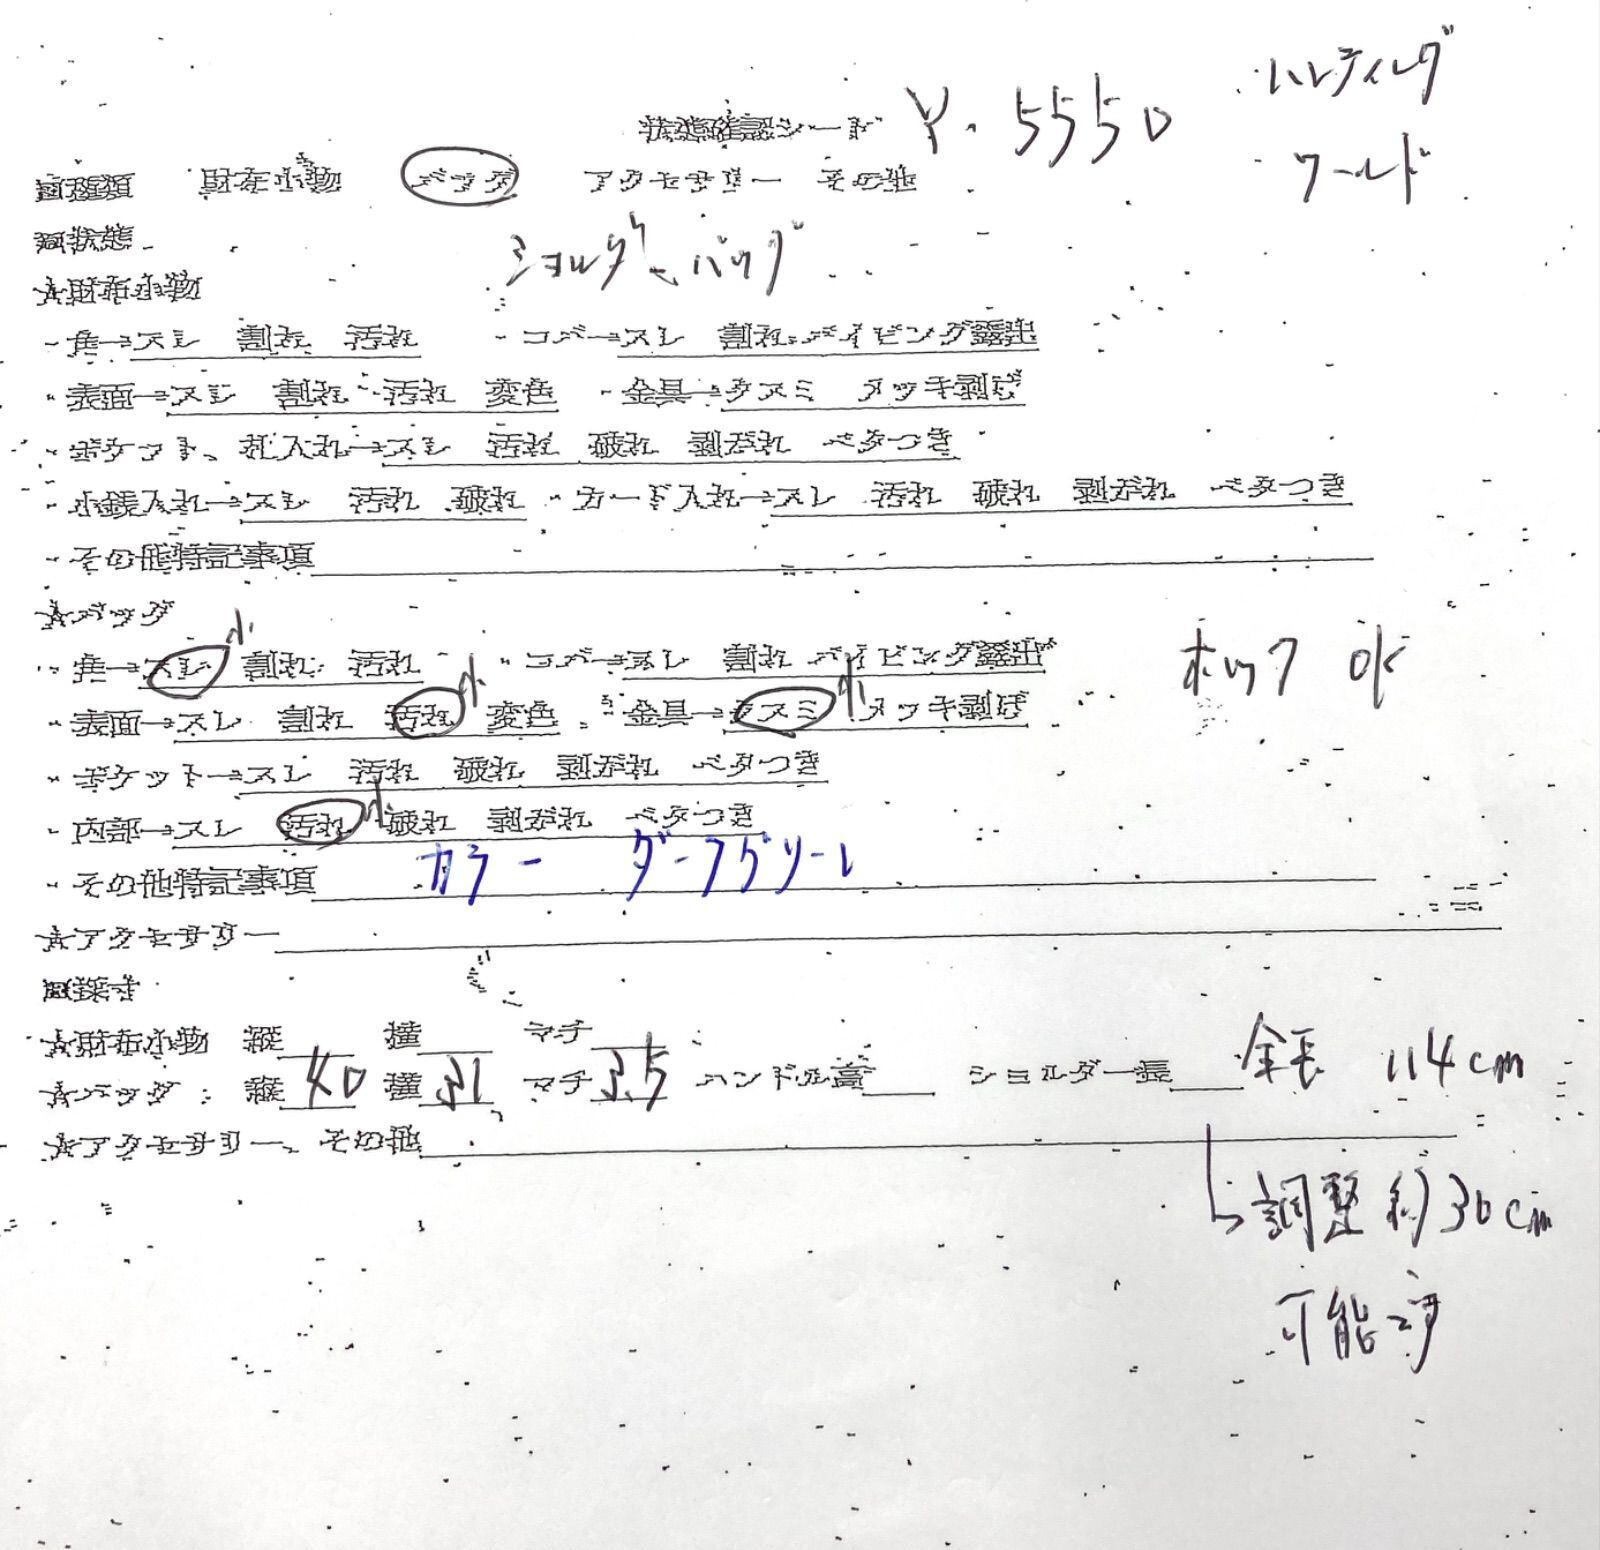 ハンティング
ワールド
状態確認シート ¥.5550
□種類 財布小物 バッグ アクセサリー その他
□状態
ショルダーバッグ
☆財布小物
・角→スレ 割れ 汚れ ・コバ→スレ 割れ パイピング露出
・表面→スレ 割れ 汚れ 変色 ・金具→クスミ メッキ剥げ
・ポケット、札入れ→スレ 汚れ 破れ 剥がれ ベタつき
・小銭入れ→スレ 汚れ 破れ ・カード入れ→スレ 汚れ 破れ 剥がれ ベタつき
・その他特記事項
☆バッグ
・角→スレ小 割れ 汚れ ・コバ→スレ 割れ パイピング露出
・表面→スレ 割れ 汚れ小 変色 ・金具→クスミ小 メッキ剥げ
ホック OK
・ポケット→スレ 汚れ 破れ 剥がれ ベタつき
・内部→スレ 汚れ小 破れ 剥がれ ベタつき
・その他特記事項 カラー ダークグリーン
☆アクセサリー
□採寸
☆財布小物 縦 横 マチ
☆バッグ:縦 40 横 31 マチ 3.5 ハンドル高 ショルダー長 全長 114cm
☆アクセサリー、その他
↳調整約30cm
可能です